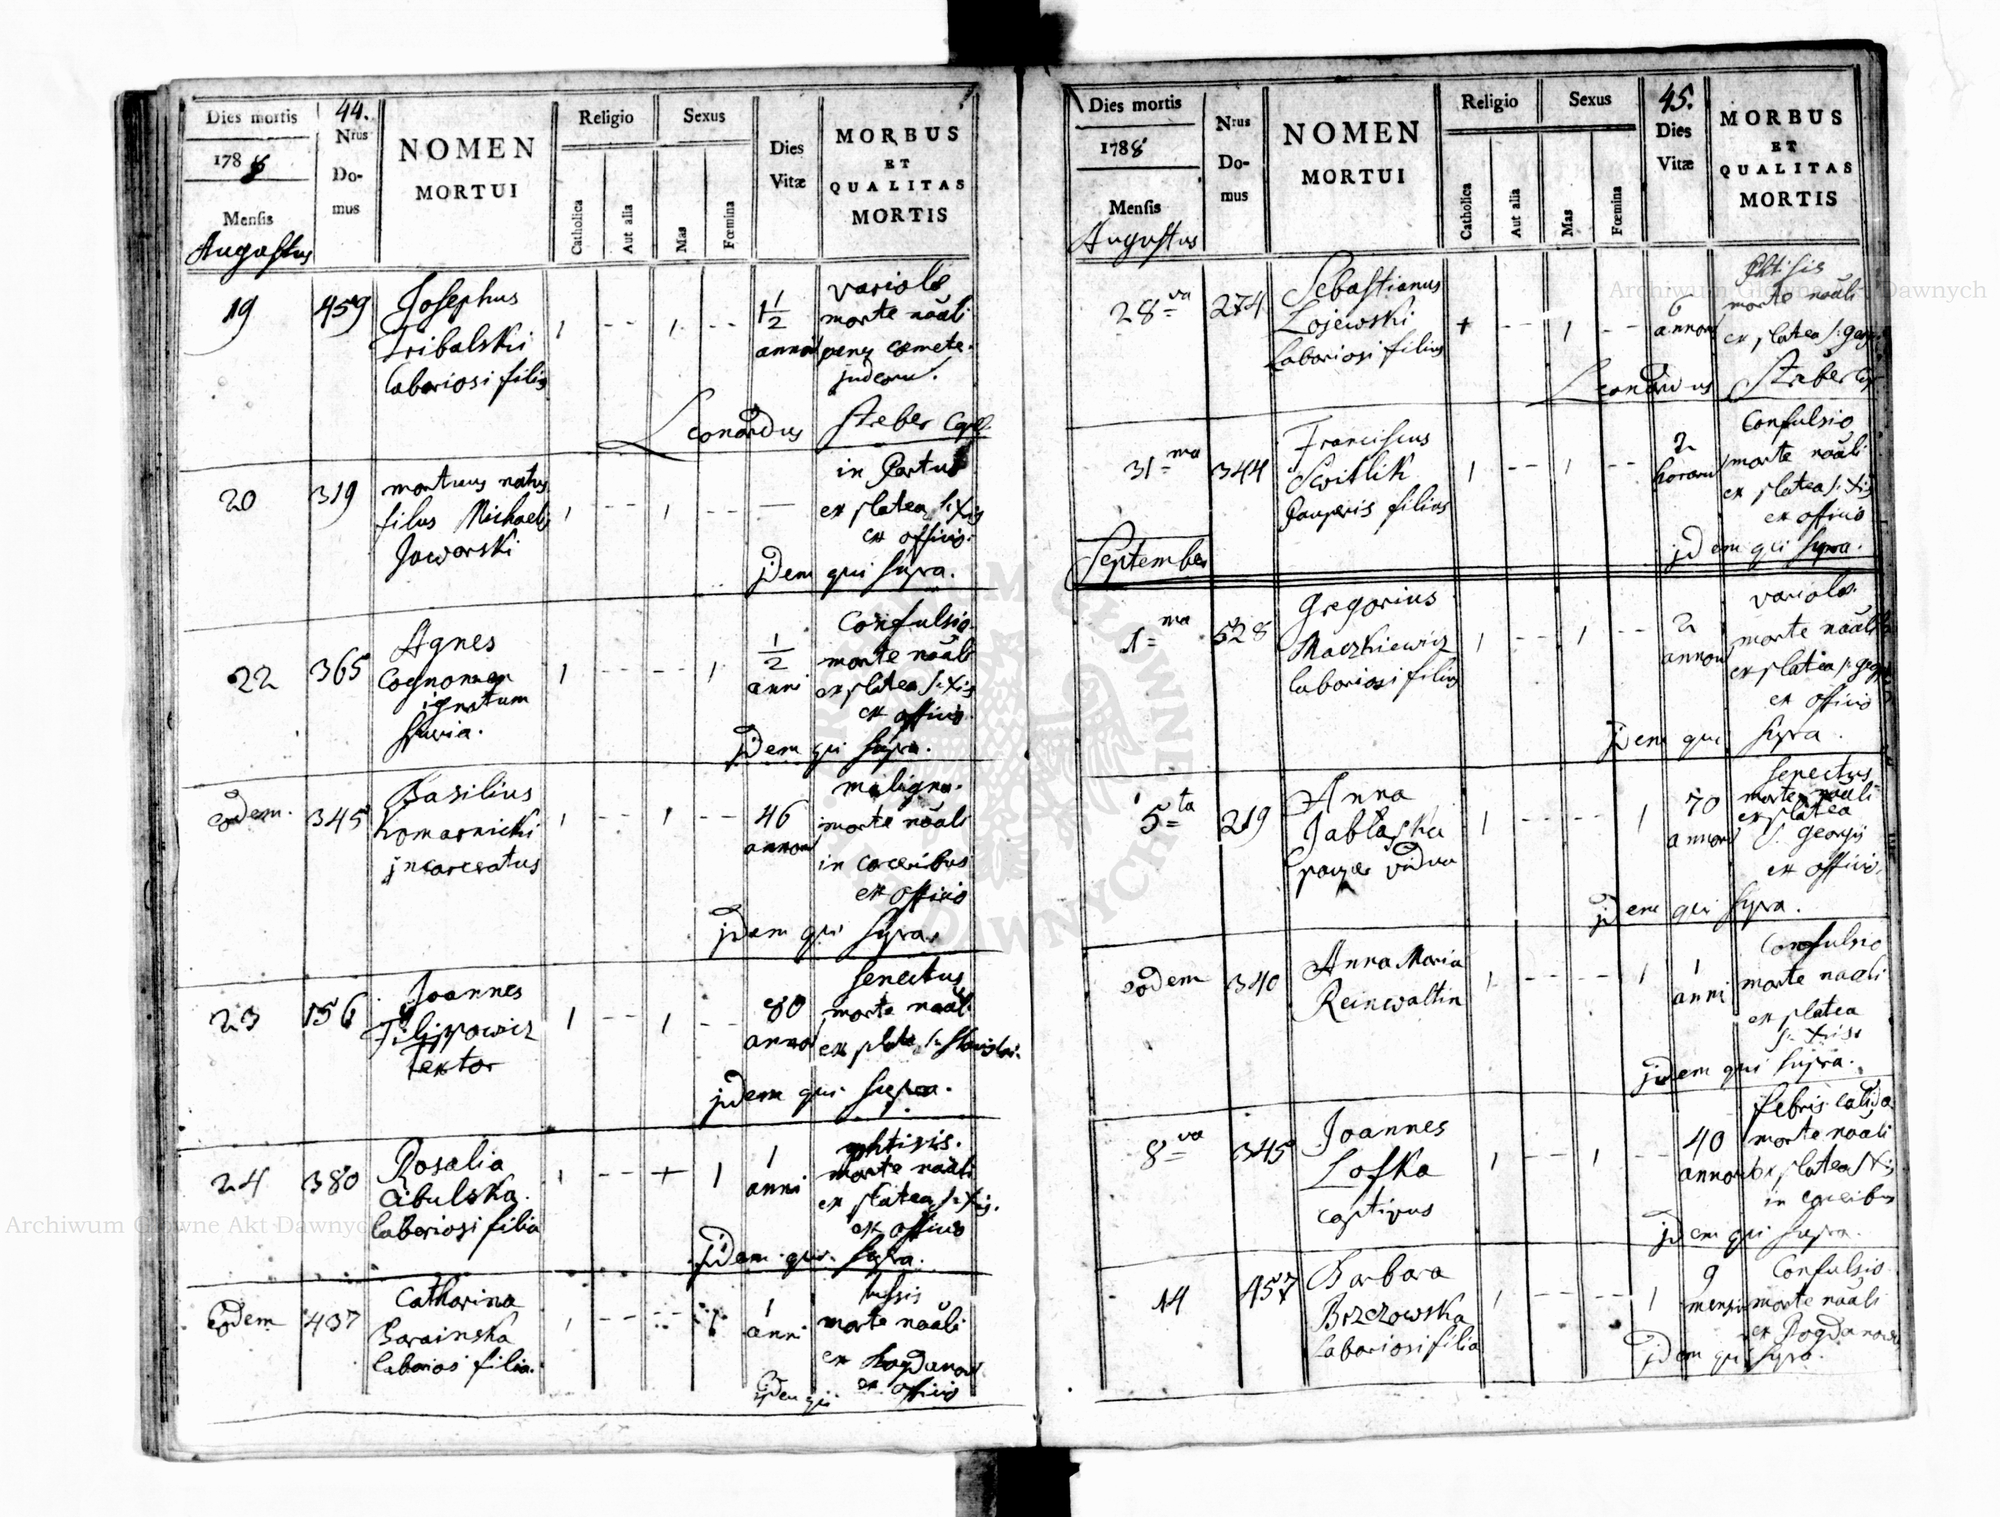 Dies mortis
1788
Mensis
Augustus
44.
Nrus
Do-
mus
NOMEN
MORTUI
Religio
Catholica
Aut alia
Sexus
Mas
Fœmina
Dies
Vitæ
MORBUS
ET
QUALITAS
MORTIS
19 459 Josephus
Tribalski
laboriosi filius
1 -- 1 --
1 1/2
annor
variolæ
morte nãali
penes cemete.
judeoru.
Leonardus Streber Copel.
20 319 mortuus natus
filus Michaelis
Jaworski
1 -- 1 -- —
in Partu
ex platea S: Xis
ex officio.
jdem qui supra.
22 365 Agnes
Cognomen
ignotum
spuria.
1 -- -- 1
1/2
anni
Confulsio.
morte nãali
ex platea S: Xis
ex officio
jdem qui supra.
eodem. 345 Basilius
Komarnicki
jncarceratus
1 -- 1 --
46
annoru
maligna.
morte nãali
in carceribus
ex officio
jdem qui supra.
23 156 Joannes
Filippowicz
Textor
1 -- 1 --
80
annor
senectus
morte naali
ex platea S: Stanislai.
jdem qui supra.
24 380 Rosalia
Cibulska.
laboriosi filia
1 -- + 1
1
anni
phtisis.
morte naali
ex platea S: Xis.
ex officio
jdem qui supra.
eodem 437 Catharina
Barainska
laborios filia.
1 -- -- 1
1
anni
tussis
morte naali
ex Bogdanow
ex officio
jdem qui
Dies mortis
1788
Mensis
Augustus
Nrus
Do-
mus
NOMEN
MORTUI
Religio
Catholica
Aut alia
Sexus
Mas
Fœmina
45.
Dies
Vitæ
MORBUS
ET
QUALITAS
MORTIS
28va 274 Sebastianus
Łojewski
Laboriosi filius
+ -- 1 --
6
annoru
Phtisis
morte naali
ex platea S: Georgii
Leonardus Streber Cop.
31ma 344 Franciscus
Switlik
Pauperis filius
1 -- 1 --
2
horaru
Confulsio
morte naali
ex platea S: Xis
ex officio
jdem qui supra.
September
1ma 528 Gregorius
Maczkiewicz
laboriosi filius
1 -- 1 --
2
annoru
variolæ.
morte naali
ex platea S: Georgii
ex officio
jdem qui supra.
5ta 219 Anna
Jabłaska
pauper vidua
1 -- -- 1
70
annoru
senectus
morte naali
ex platea
S. Georgij
ex officio.
jdem qui supra.
eodem 340 Anna Maria
Reinwaltin
1 -- -- 1
1
anni
Confulsio
morte naali
ex platea
S: Xiss
jdem qui supra.
8va 345 Joannes
Lofka
captivus
1 -- 1 --
40
annoru
febris calida
morte naali
ex platea S Xis
in carceribus
jdem qui supra.
14 457 Barbara
Brzezowska
Laboriosi filia
1 -- -- 1
9
mensiu
Confulsio
morte naali
ex Bogdanow
jdem qui supra.
Archiwum Główne Akt Dawnych
Archiwum Główne Akt Dawnych
ARCHIWUM GŁÓWNE AKT DAWNYCH